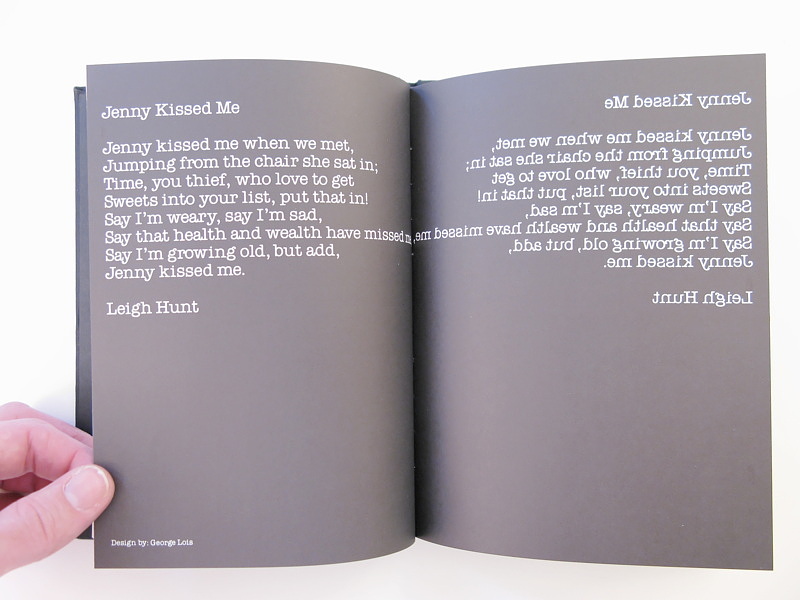 Jenny Kissed Me
Jenny kissed me when we met,
Jumping from the chair she sat in;
Time, you thief, who love to get
Sweets into your list, put that in!
Say I'm weary, say I'm sad,
Say that health and wealth have missed
Say I'm growing old, but add,
Jenny kissed me.
Leigh Hunt
Design by: George Lois
Jenny Kissed Me
Jenny kissed me when we met,
Jumping from the chair she sat in;
Time, you thief, who love to get
Sweets into your list, put that in!
Say I'm weary, say I'm sad,
Say that health and wealth have missed me,
Say I'm growing old, but add,
Jenny kissed me.
Leigh Hunt